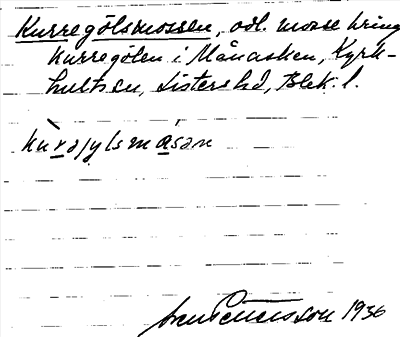 Kurregölsmossen, odl. mosse kring
Kurregölen i Månasken, Kyrk-
hults sn, Listers hd, Blek. l.
kùrəjylsmåsən
1936